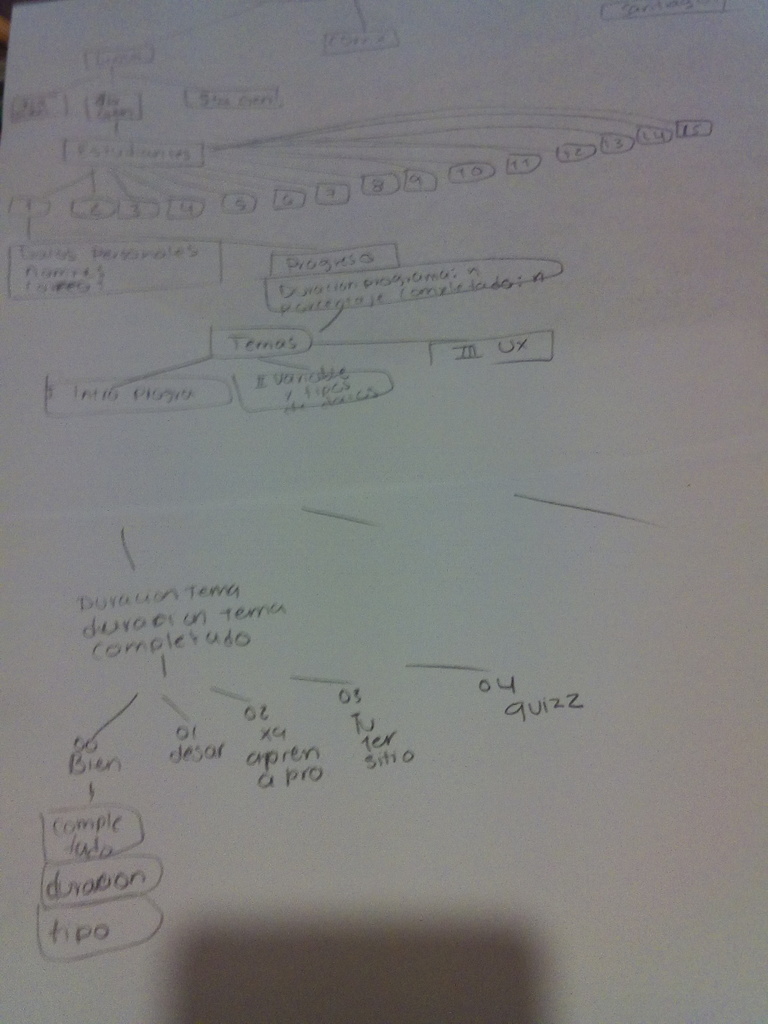 Santiago
Lima
Estudiantes
1 2 3 4 5 6 7 8 9 10 11 12 13 14 15
Datos personales
nombres
correo
Progreso
Duracion programa: n
porcentaje completado: n
Temas
III UX
I Intro progra
II variable
y tipos
de datos
Duracion Tema
duracion tema
completado
00
Bien
01
desar
02
xq
apren
a pro
03
Tu
1er
sitio
04
quizz
comple
tado
duracion
tipo